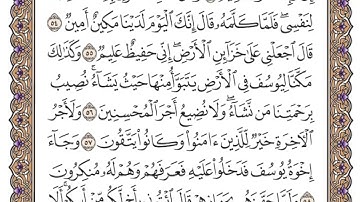 لِنَفْسِي ۖ فَلَمَّا كَلَّمَهُ قَالَ إِنَّكَ الْيَوْمَ لَدَيْنَا مَكِينٌ أَمِينٌ ٥٤
قَالَ اجْعَلْنِي عَلَىٰ خَزَائِنِ الْأَرْضِ ۖ إِنِّي حَفِيظٌ عَلِيمٌ ٥٥ وَكَذَٰلِكَ
مَكَّنَّا لِيُوسُفَ فِي الْأَرْضِ يَتَبَوَّأُ مِنْهَا حَيْثُ يَشَاءُ ۚ نُصِيبُ
بِرَحْمَتِنَا مَن نَّشَاءُ ۖ وَلَا نُضِيعُ أَجْرَ الْمُحْسِنِينَ ٥٦ وَلَأَجْرُ
الْآخِرَةِ خَيْرٌ لِّلَّذِينَ آمَنُوا وَكَانُوا يَتَّقُونَ ٥٧ وَجَاءَ
إِخْوَةُ يُوسُفَ فَدَخَلُوا عَلَيْهِ فَعَرَفَهُمْ وَهُمْ لَهُ مُنكِرُونَ